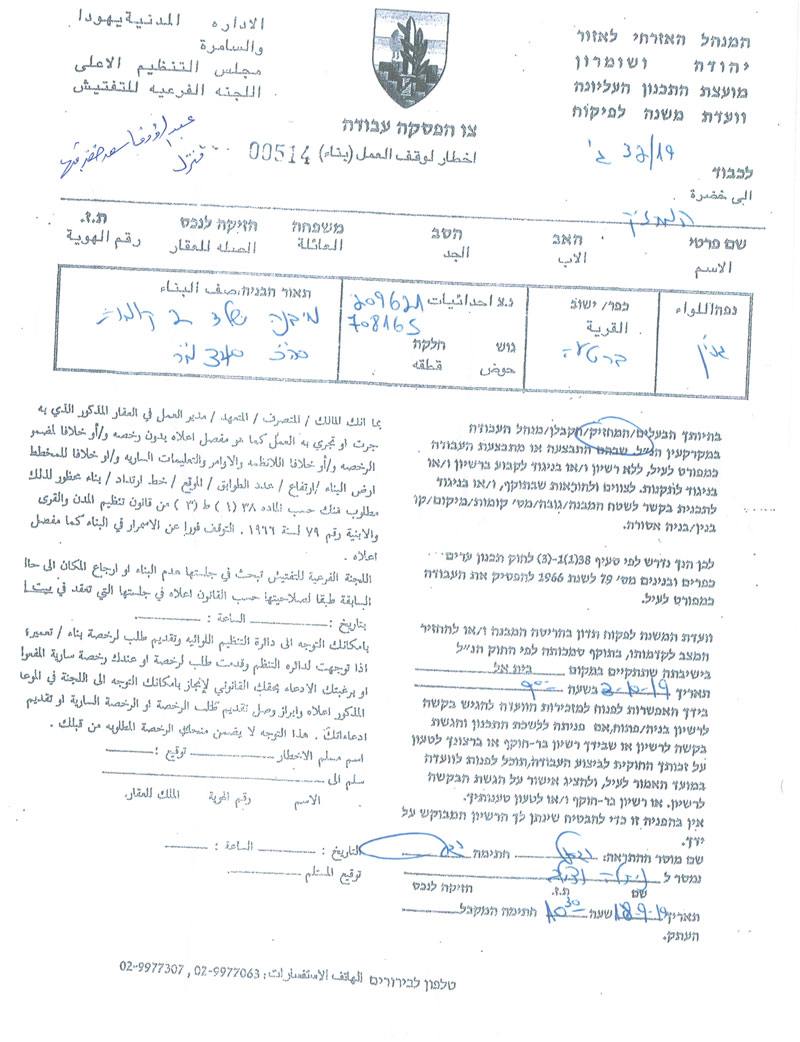 המנהל האזרחי לאזור
יהודה ושומרון
מועצת התכנון העליונה
וועדת משנה לפיקוח
الاداره المدنية يهودا
والسامرة
مجلس التنظيم الاعلى
اللجنه الفرعيه للتفتيش
צו הפסקה עבודה
اخطار لوقف العمل (بناء) 00514
לכבוד
32/19 ג'
الى حضرة
המחזיק
שם פרטי האב הסב משפחה חזיקה לנכס ת.ז.
الاسم الاب الجد العائلة الصله للعقار رقم الهوية
נפה/اللواء
ג'נין
כפר/ ישוב
القرية
ברטעה
נ.צ احداثيات 209621
708165
גוש חלקה
حوض قطعه
תאור הבניה,صف البناء
מבנה של 2 קומות
סה"כ 340 מ"ר
בהיותך הבעלים/המחזיק/הקבלן/מנהל העבודה
במקרקעין הנ"ל, שבהם התבצעה או מתבצעת העבודה
כמפורט לעיל, ללא רשיון ו/או בניגוד לקבוע ברשיון ו/או
בניגוד לתקנות, לצווים ולהוראות שבתוקף, ו/או בניגוד
לתכנית בקשר לשטח המבנה/גובה/מס' קומות/מיקום/קו
בנין/בניה אסורה.
לכן הנך נדרש לפי סעיף 38(1)ג-(3) לחוק תכנון ערים
כפרים ובנינים מס' 79 לשנת 1966 להפסיק את העבודה
כמפורט לעיל.
וועדת המשנה לפקוח תדון בהריסת המבנה ו/או להחזיר
המצב לקדמותו, בתוקף סמכותה לפי החוק הנ"ל
בישיבתה שתתקיים במקום בית אל
תאריך 2-10-19 בשעה 9:00
בידך האפשרות לפנות למזכירות הוועדה להגיש בקשה
לרשיון בניה/פתוח,אם פניתה ללשכת התכנון והגשת
בקשה לרשיון או שבידך רשיון בר-תוקף או ברצונך לטעון
על זכותך החוקית לביצוע העבודה,תוכל לפנות לוועדה
במועד האמור לעיל, ולהציג אישור על הגשת הבקשה
לרשיון. או רשיון בר-תוקף ו/או לטעון טענותיך.
אין בהפניה זו כדי להבטיח שינתן לך הרשיון המבוקש על
ידך.
שם מוסר ההתראה: חתימה
נמסר ל
שם ת.ז. חזיקה לנכס
תאריך 18-9-19 שעה 10:30 חתימה המקבל
העתק.
بما انك المالك / المتصرف / المتعهد / مدير العمل في العقار المذكور الذي به
جرت او تجري به العمل كما هو مفصل اعلاه بدون رخصه و/أو خلافا لمضمون
الرخصه و/أو خلافا للانظمه والاوامر والتعليمات الساريه و/او خلافا للمخطط
ارض البناء /ارتفاع / عدد الطوابق / الموقع / خط ارتداد / بناء محظور لذلك
مطلوب منك حسب الماده ٣٨ (١) ط (٣) من قانون تنظيم المدن والقرى
والابنية رقم ٧٩ لسنة ١٩٦٦ . التوقف فورا عن الاسمرار في البناء كما مفصل
اعلاه .
اللجنة الفرعية للتفتيش تبحث في جلستها هدم البناء او ارجاع المكان الى حا
السابقة طبقا لصلاحيتها حسب القانون اعلاه في جلستها التي تعقد في بيت ا
بتاريخ : الساعة :
بامكانك التوجه الى دائرة التنظيم اللوائيه وتقديم طلب لرخصة بناء / تعمير
اذا توجهت لدائره التنظم وقدمت طلب لرخصة او عندك رخصة سارية المفعو
او برغبتك الادعاء بحقك القانوني لإنجاز بامكانك التوجه الى اللجنة في الموعا
المذكور اعلاه وابراز وصل تقديم طلب الرخصة او الرخصة السارية او تقديم
ادعاءاتك . هذا التوجه لا يضمن منحك الرخصة المطلوبه من قبلك .
اسم مسلم الاخطار توقيع :
سلم الى
الاسم رقم الهوية المالك للعقار.
التاريخ : الساعة :
توقيع المستلم
טלפון לבירורים الهاتف الاستفسارات : 02-9977063 , 02-9977307